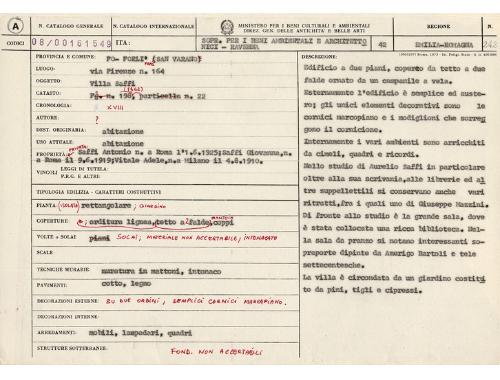 A
N. CATALOGO GENERALE
N. CATALOGO INTERNAZIONALE
MINISTERO PER I BENI CULTURALI E AMBIENTALI
DIREZ. GEN. DELLE ANTICHITÀ E BELLE ARTI
REGIONE
N.
CODICI
08/00161549
ITA:
SOPR. PER I BENI AMBIENTALI E ARCHITETTO
NICI - RAVENNA
42
EMILIA-ROMAGNA
242
PROVINCIA E COMUNE:
FO- FORLI' (SAN VARANO)
LUOGO:
via Firenze n. 164
OGGETTO:
Villa Saffi
CATASTO:
n. 198, particella n. 22
CRONOLOGIA:
XVIII
AUTORE:
?
DEST. ORIGINARIA:
abitazione
USO ATTUALE:
abitazione
PROPRIETÀ:
Saffi Antonio n. a Roma l'1.6.1925; Saffi Giovanna, n.
a Roma il 9.6.1919; Vitale Adele, n. a Milano il 4.8.1910.
VINCOLI
LEGGI DI TUTELA:
P.R.G. E ALTRI:
TIPOLOGIA EDILIZIA - CARATTERI COSTRUTTIVI
PIANTA:
(ISOLATA) rettangolare; GIARDINO
COPERTURE:
orditura lignea, tetto a falde, coppi
VOLTE o SOLAI:
piani SOLAI; MATERIALE NON ACCERTABILE; INTONACATO
SCALE
TECNICHE MURARIE:
muratura in mattoni, intonaco
PAVIMENTI:
cotto, legno
DECORAZIONI ESTERNE:
SU DUE ORDINI, SEMPLICI CORNICI MARCAPIANO.
DECORAZIONI INTERNE:
ARREDAMENTI:
mobili, lampadari, quadri
STRUTTURE SOTTERRANEE:
FOND. NON ACCERTABILI
DESCRIZIONE:
Edificio a due piani, coperto da tetto a
due falde ornato da un campanile a vela.
Esternamente l'edificio è semplice ed auste-
ro; gli unici elementi decorativi sono le
cornici marcapiano e i modiglioni che sorreg
gono il cornicione.
Internamente i vari ambienti sono arricchiti
da cimeli, quadri e ricordi.
Nello studio di Aurelio Saffi in particolare
oltre alla sua scrivania, alle librerie ed al
tre suppellettili si conservano anche vari
ritratti, fra i quali uno di Giuseppe Mazzini.
Di fronte allo studio è la grande sala, dove
è stata collocata una ricca biblioteca. Nel-
la sala da pranzo si notano interessanti so-
vrapporte dipinte da Amerigo Bartoli e tele
settecentesche.
La villa è circondata da un giardino costitui
to da pini, tigli e cipressi.